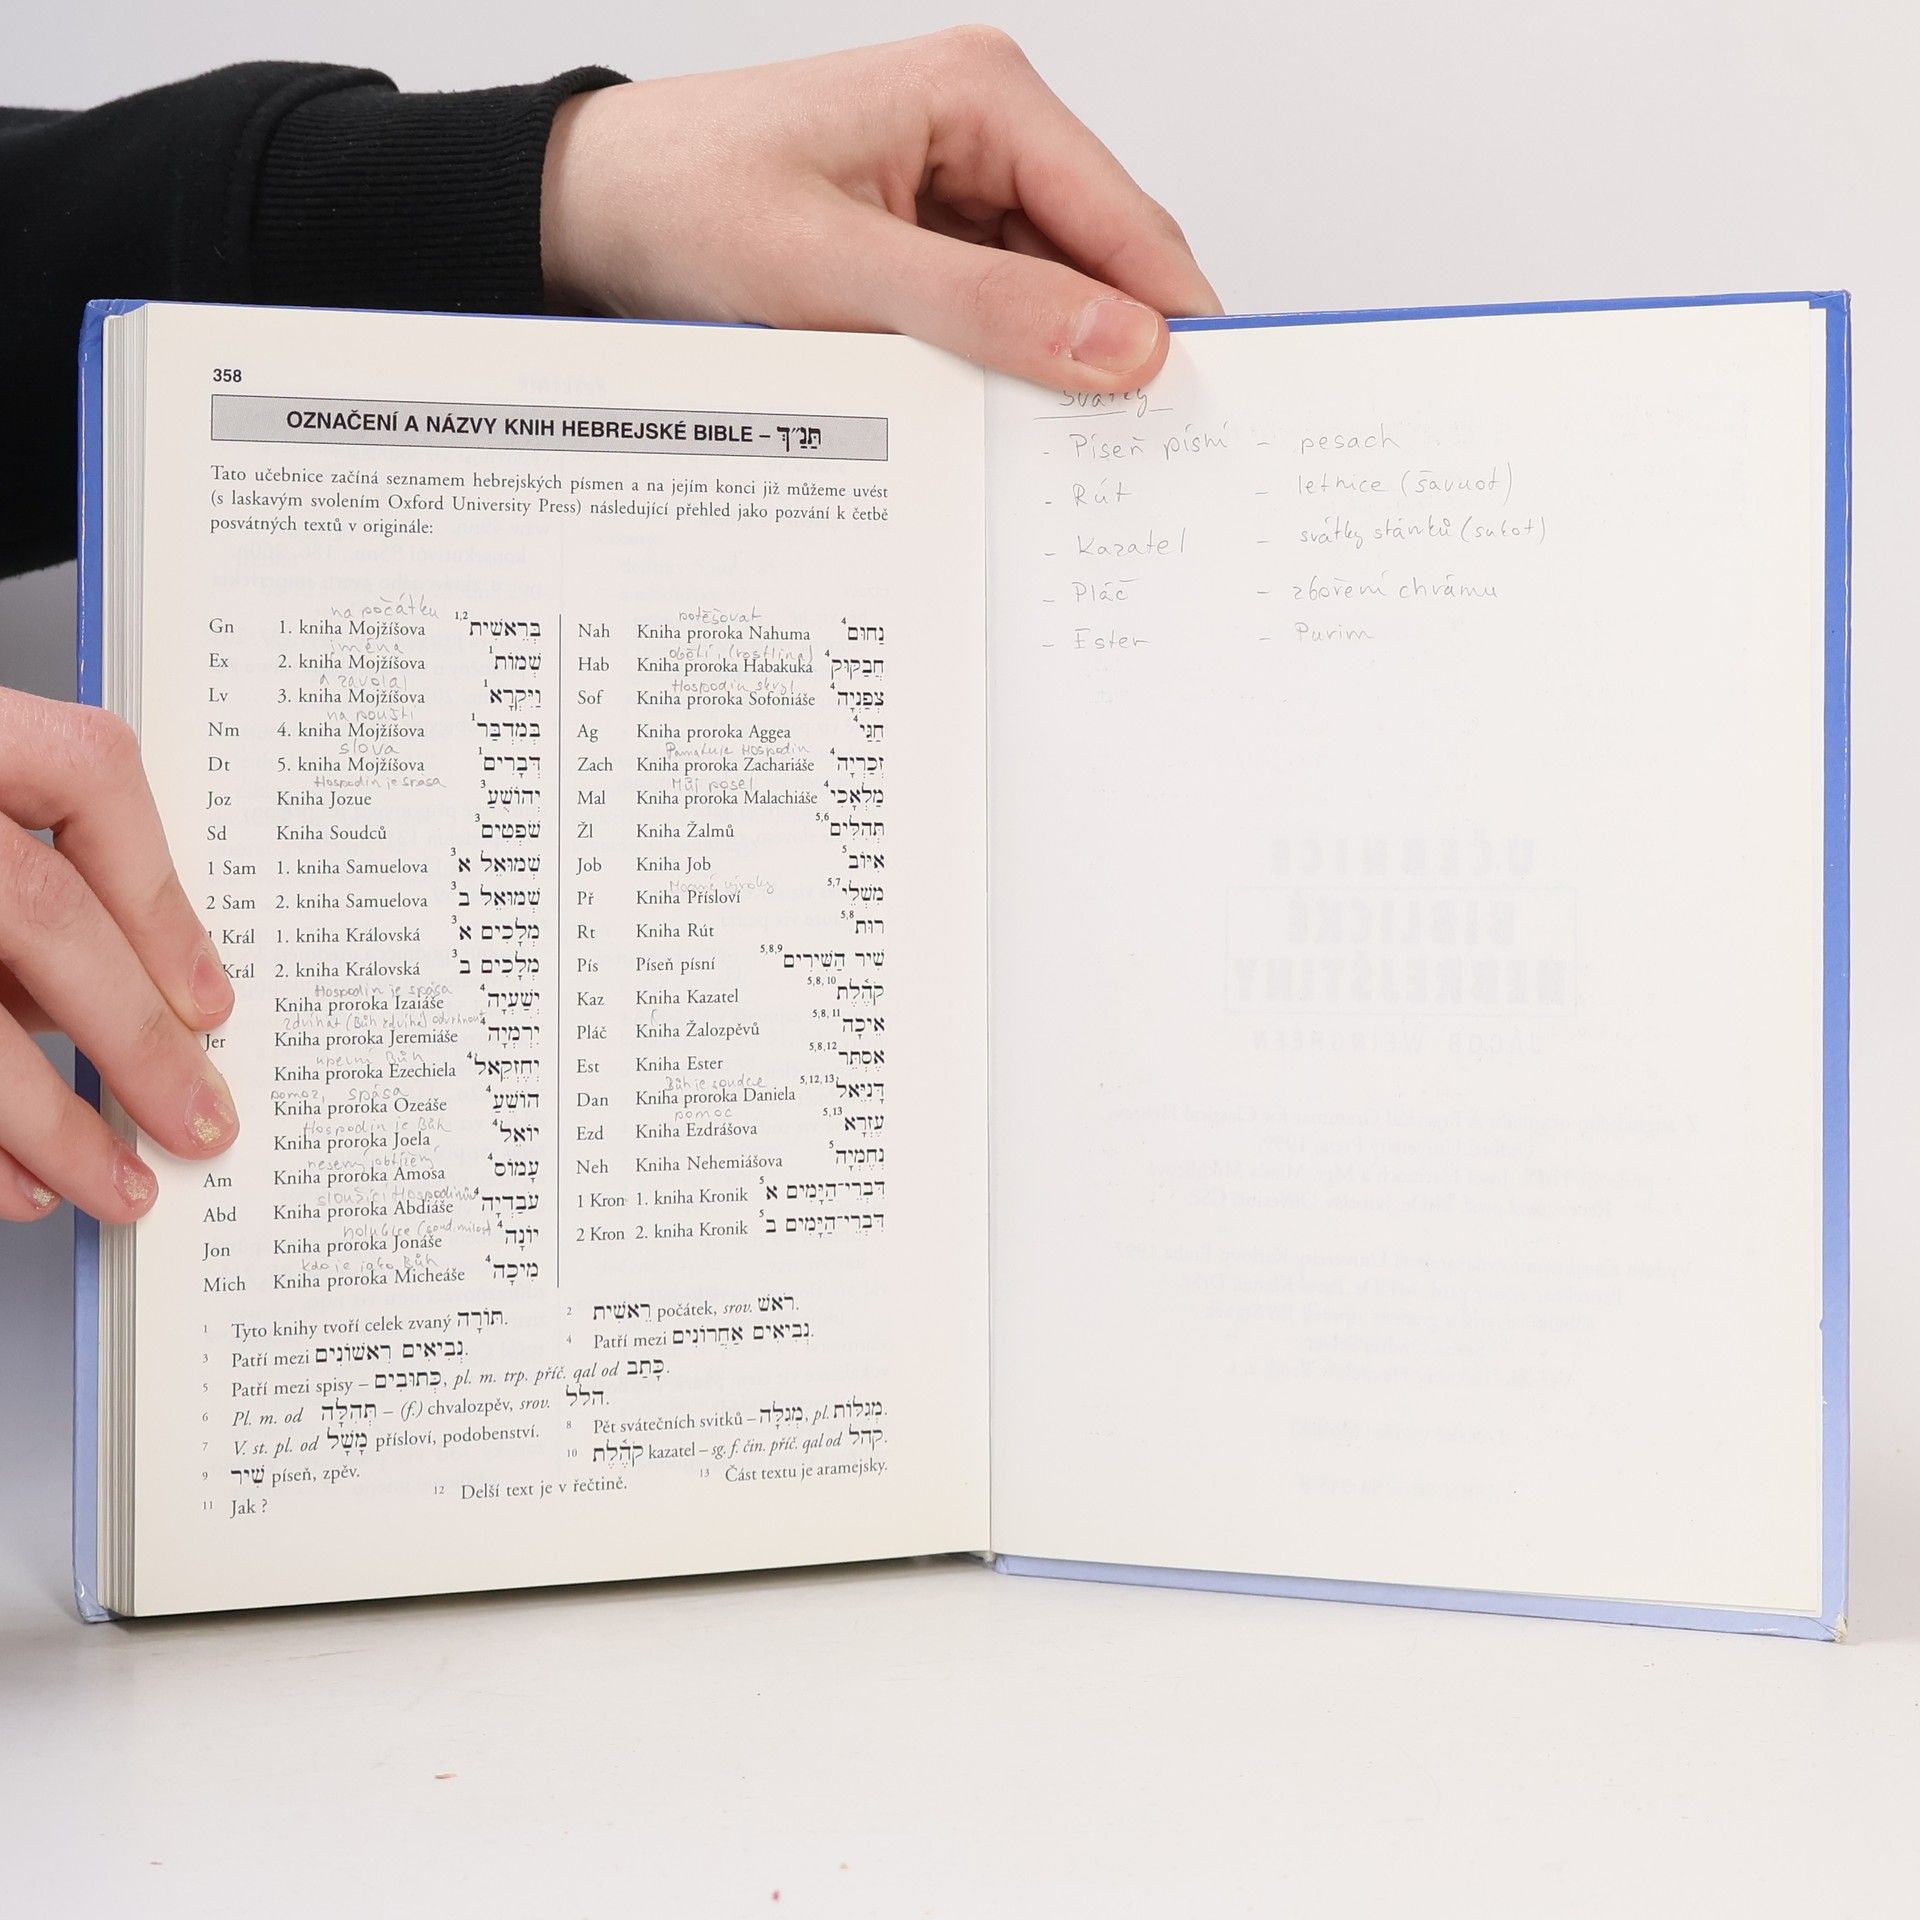 358
OZNAČENÍ A NÁZVY KNIH HEBREJSKÉ BIBLE – תַּנַ״ךְ
Tato učebnice začíná seznamem hebrejských písmen a na jejím konci již můžeme uvést
(s laskavým svolením Oxford University Press) následující přehled jako pozvání k četbě
posvátných textů v originále:
na počátku
Gn 1. kniha Mojžíšova 1,2 בְּרֵאשִׁית
jména
Ex 2. kniha Mojžíšova 1 שְׁמוֹת
a zavolal
Lv 3. kniha Mojžíšova 1 וַיִּקְרָא
na poušti
Nm 4. kniha Mojžíšova 1 בְּמִדְבַּר
slova
Dt 5. kniha Mojžíšova 1 דְּבָרִים
Hospodin je spása
Joz Kniha Jozue 3 יְהוֹשֻׁעַ
Sd Kniha Soudců 3 שֹׁפְטִים
1 Sam 1. kniha Samuelova 3 שְׁמוּאֵל א
2 Sam 2. kniha Samuelova 3 שְׁמוּאֵל ב
Král 1. kniha Královská 3 מְלָכִים א
Král 2. kniha Královská 3 מְלָכִים ב
Hospodin je spása
Kniha proroka Izaiáše 4 יְשַׁעְיָה
zdvihat (Bůh zdvíhá) odvrhnout
Jer Kniha proroka Jeremiáše 4 יִרְמְיָה
upevní Bůh
Kniha proroka Ezechiela 4 יְחֶזְקֵאל
pomoz, spása
Kniha proroka Ozeáše 4 הוֹשֵׁעַ
Hospodin je Bůh
Kniha proroka Joela 4 יוֹאֵל
nesený, obtížený
Am Kniha proroka Amosa 4 עָמוֹס
sloužící Hospodinu
Abd Kniha proroka Abdiáše 4 עֹבַדְיָה
holubice
Jon Kniha proroka Jonáše 4 יוֹנָה
kdo je jako Bůh
Mich Kniha proroka Micheáše 4 מִיכָה
potěšovat
Nah Kniha proroka Nahuma 4 נַחוּם
objetí, (rostlina)
Hab Kniha proroka Habakuka 4 חֲבַקּוּק
Hospodin skryl
Sof Kniha proroka Sofoniáše 4 צְפַנְיָה
Ag Kniha proroka Aggea 4 חַגַּי
Pamatuje Hospodin
Zach Kniha proroka Zachariáše 4 זְכַרְיָה
Můj posel
Mal Kniha proroka Malachiáše 4 מַלְאָכִי
Žl Kniha Žalmů 5,6 תְּהִלִּים
Job Kniha Job 5 אִיּוֹב
výroky
Př Kniha Přísloví 5,7 מִשְׁלֵי
Rt Kniha Rút 5,8 רוּת
Pís Píseň písní 5,8,9 שִׁיר הַשִּׁירִים
Kaz Kniha Kazatel 5,8,10 קֹהֶלֶת
Pláč Kniha Žalozpěvů 5,8,11 אֵיכָה
Est Kniha Ester 5,8,12 אֶסְתֵּר
Bůh je soudce
Dan Kniha proroka Daniela 5,12,13 דָּנִיֵּאל
pomoc
Ezd Kniha Ezdrášova 5,13 עֶזְרָא
Neh Kniha Nehemiášova 5 נְחֶמְיָה
1 Kron 1. kniha Kronik 5 דִּבְרֵי־הַיָּמִים א
2 Kron 2. kniha Kronik 5 דִּבְרֵי־הַיָּמִים ב
1 Tyto knihy tvoří celek zvaný תּוֹרָה.
2 רֵאשִׁית počátek, srov. רֹאשׁ.
3 Patří mezi נְבִיאִים רִאשׁוֹנִים.
4 Patří mezi נְבִיאִים אַחֲרוֹנִים.
5 Patří mezi spisy – כְּתוּבִים, pl. m. trp. příč. qal od כָּתַב.
6 Pl. m. od תְּהִלָּה – (f.) chvalozpěv, srov. הלל.
7 V. st. pl. od מָשָׁל přísloví, podobenství.
8 Pět svátečních svitků – מְגִלָּה, pl. מְגִלּוֹת.
9 שִׁיר píseň, zpěv.
10 קֹהֶלֶת kazatel – sg. f. čin. příč. qal od קהל.
11 Jak ?
12 Delší text je v řečtině.
13 Část textu je aramejsky.
Svátky
- Píseň písní - pesach
- Rút - letnice (šavuot)
- Kazatel - svátky stánků (sukot)
- Pláč - zboření chrámu
- Ester - Purim